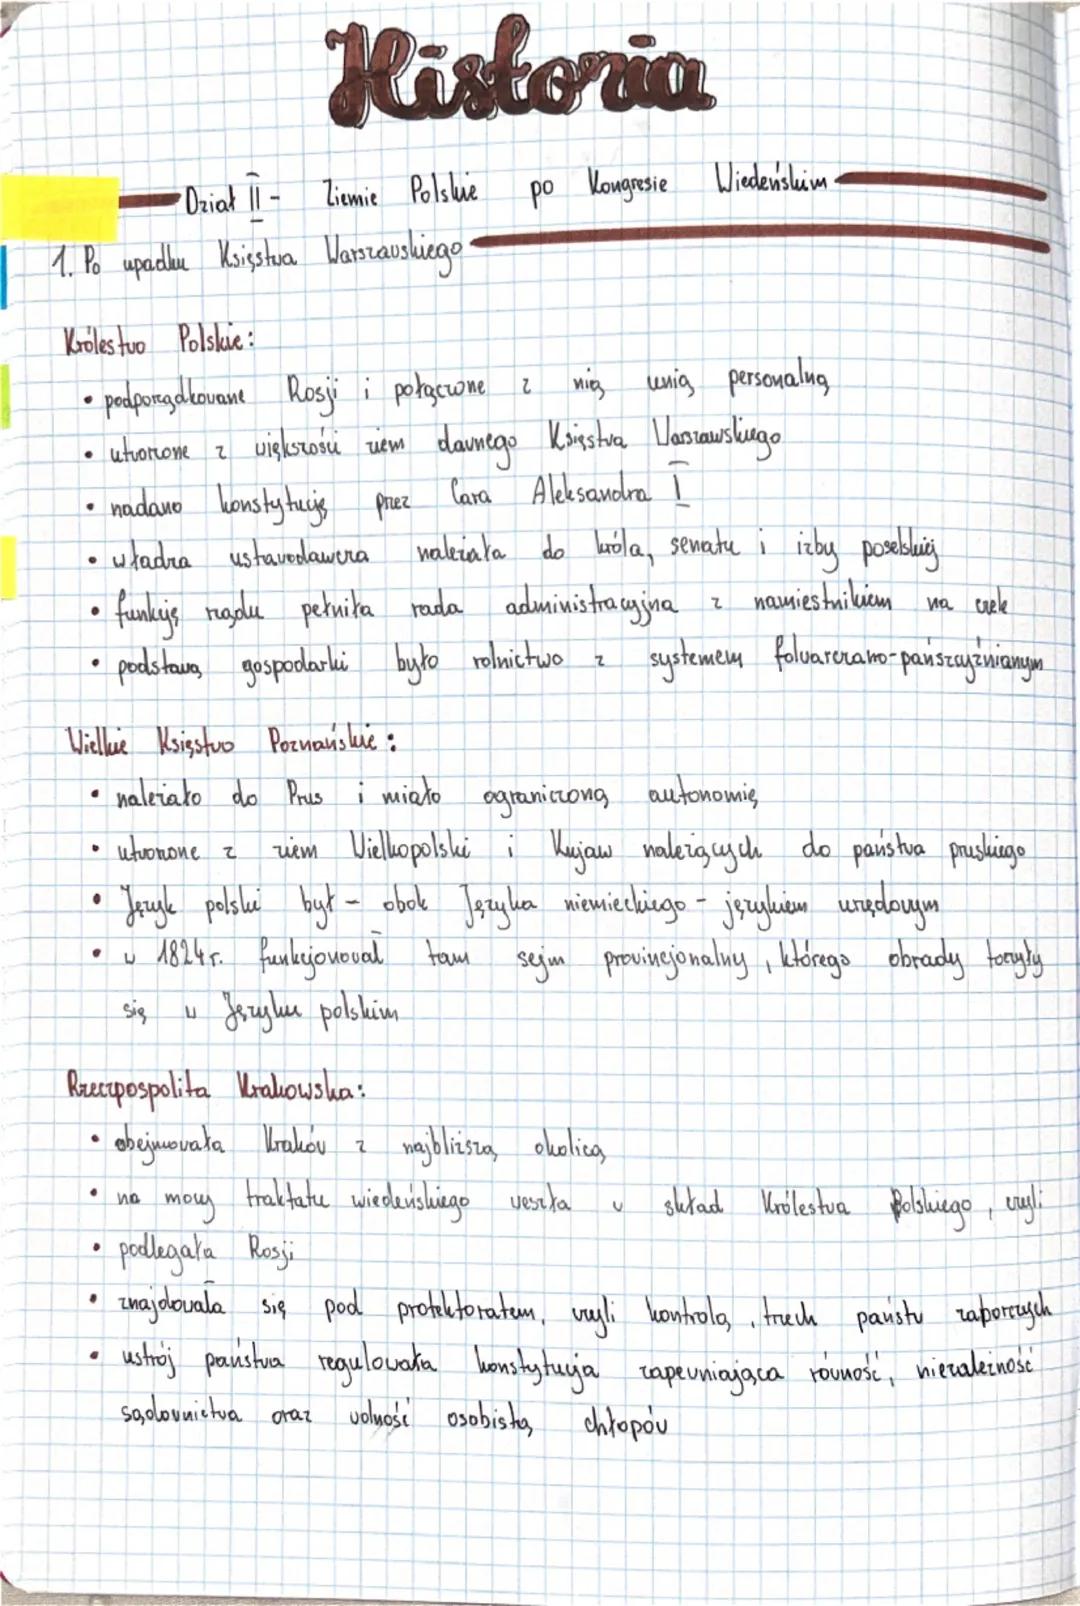 Historia
Dział II - Ziemie Polskie po Kongresie Wiedeńskim
1. Po upadku Księstwa Warszawskiego
Królestwo Polskie:
• podporządkowane Rosji i połączone z nią unią personalną
• utworzone z większości ziem dawnego Księstwa Warszawskiego
• nadano konstytucję przez Cara Aleksandra I
• władza ustawodawcza należała do króla, senatu i izby poselskiej
• funkcję rządu pełniła rada administracyjna z namiestnikiem na czele
• podstawą gospodarki było rolnictwo z systemem folwarczano-pańszczyźnianym
Wielkie Księstwo Poznańskie:
• należało do Prus i miało ograniczoną autonomię
• utworzone z ziem Wielkopolski i Kujaw należących do państwa pruskiego
• Język polski był - obok Języka niemieckiego - językiem urzędowym
• w 1824 r. funkcjonował tam sejm prowincjonalny, którego obrady toczyły
się w Języku polskim
Rzeczpospolita Krakowska:
• obejmowała Kraków z najbliższą okolicą
• na mocy traktatu wiedeńskiego weszła w skład Królestwa Polskiego, czyli
• podlegała Rosji
• znajdowała się pod protektoratem, czyli kontrolą, trzech państw zaborczych
• ustrój państwa regulowała konstytucja zapewniająca równość, niezależność
sądownictwa oraz wolność osobistą chłopów